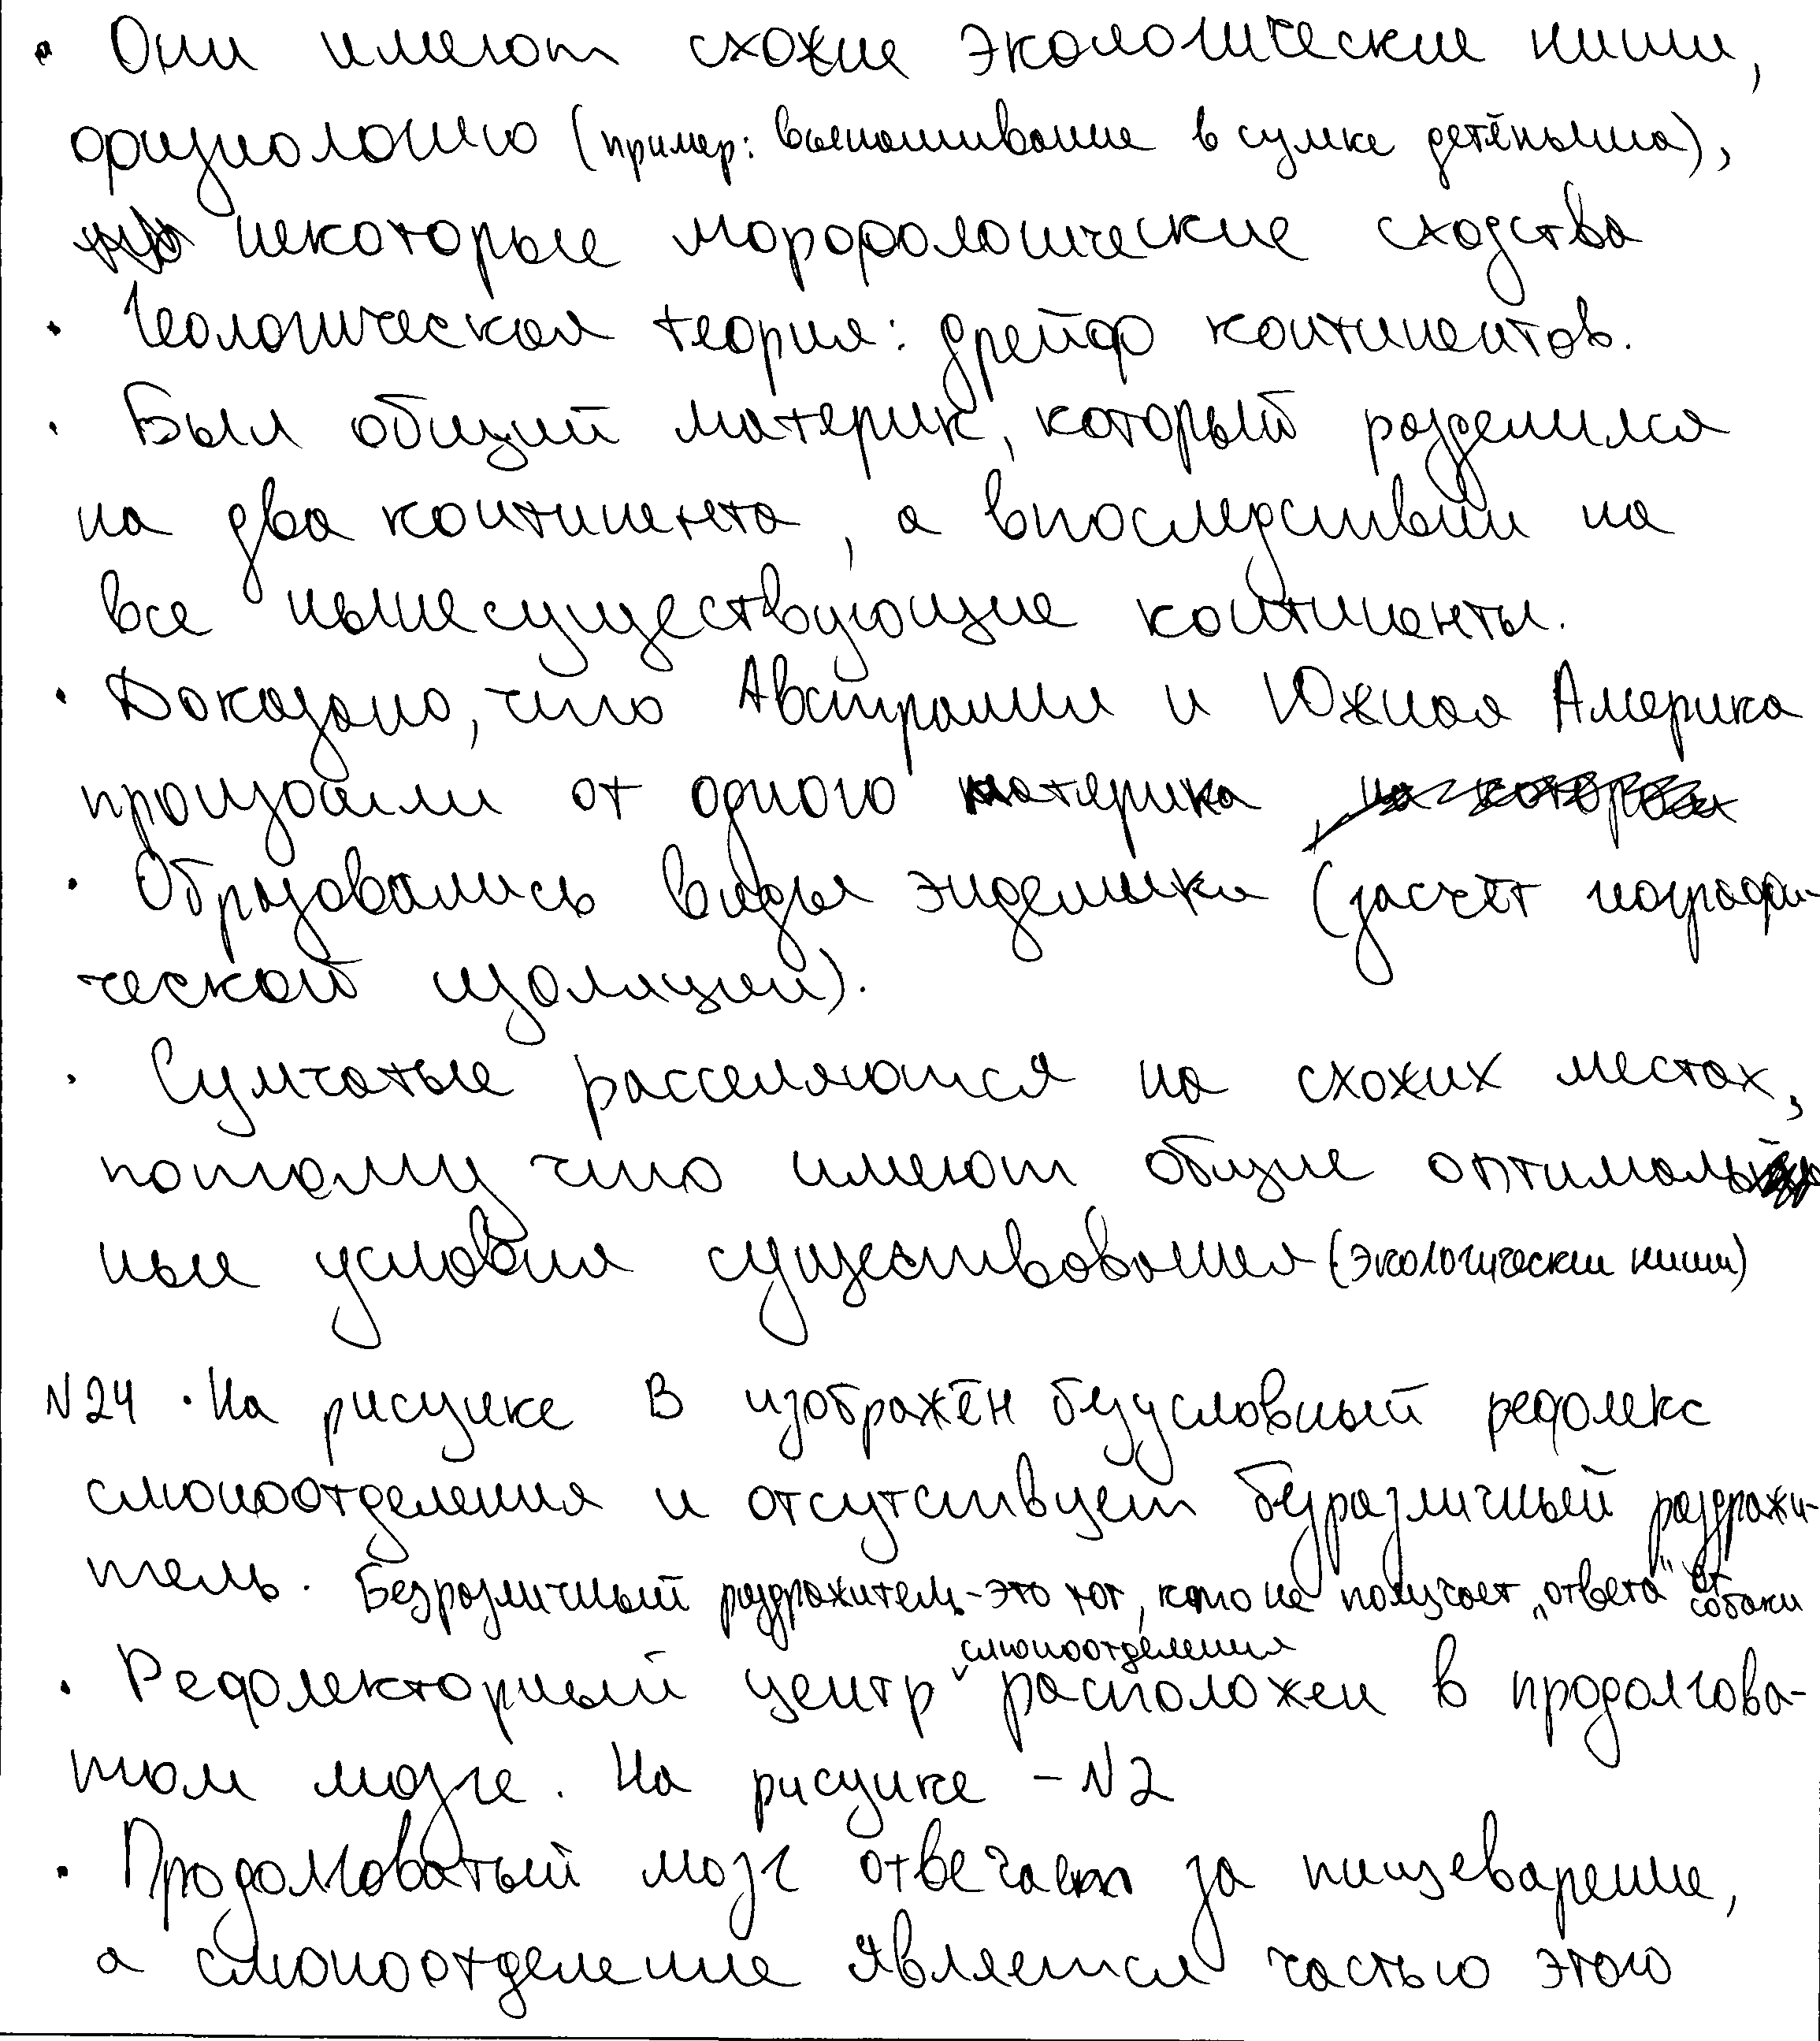 • Они имеют схожие экологические ниши,
физиологию (пример: вынашивание в сумке детёныша),
некоторые морфологические сходства
• Геологическая теория: дрейф континентов.
• Был общий материк, который разделился
на два континента, а впоследствии на
все нынесуществующие континенты.
• Доказано, что Австралия и Южная Америка
произошли от одного материка
• Образовались виды эндемики (засчёт географи-
ческой изоляции).
• Сумчатые расселяются на схожих местах,
потому что имеют общие оптималь
ные условия существования (экологические ниши)
N24 • На рисунке В изображён безусловный рефлекс
слюноотделения и отсутствует безразличный раздражи-
тель. Безразличный раздражитель - это тот, кто не получает „ответа" от собаки
слюноотделения
• Рефлекторный центр расположен в продолгова-
том мозге. На рисунке - N2
• Продолговатый мозг отвечает за пищеварение,
а слюноотделение является частью этого